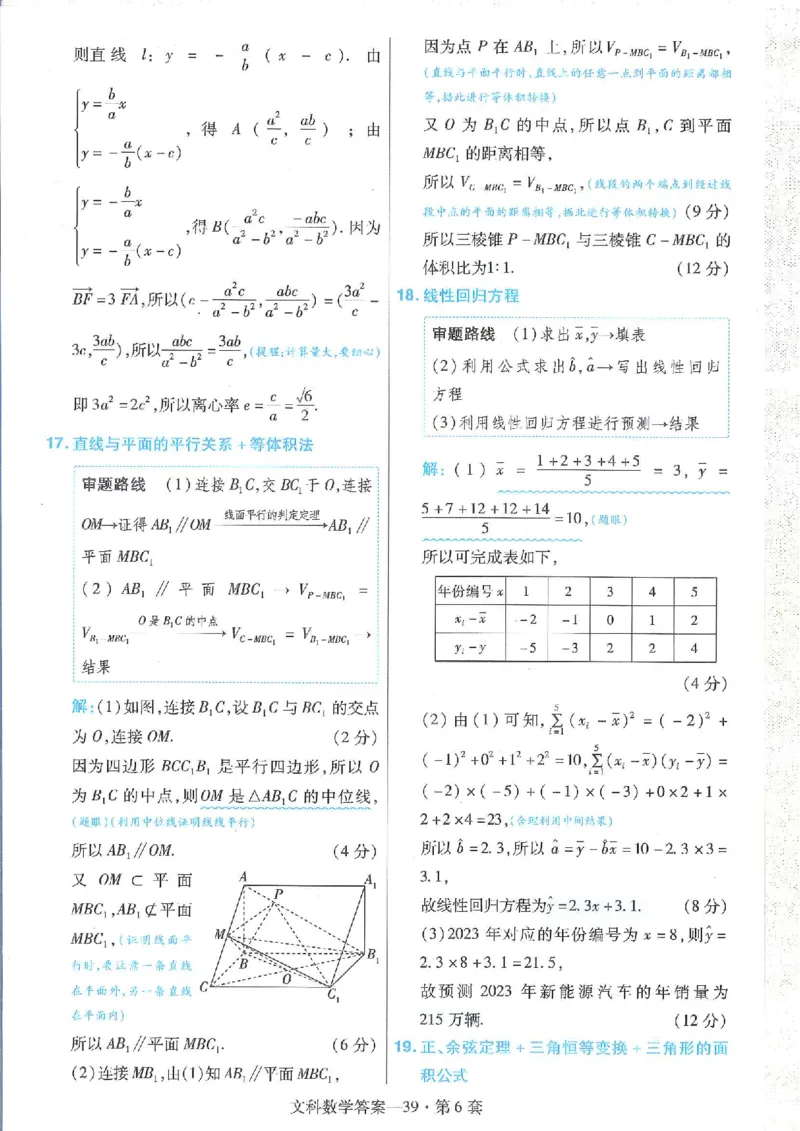 则直线 l: y = - a/b ( x - c ). 由
{ y = b/a x
y = - a/b (x-c)
, 得 A ( a²/c , ab/c ) ; 由
{ y = - b/a x
y = - a/b (x-c)
,得 B( a²c/(a²-b²) , -abc/(a²-b²) ). 因为
BF→ = 3 FA→ ,所以( c - a²c/(a²-b²) , abc/(a²-b²) ) = ( 3a²/c -
3c, 3ab/c ) ,所以 abc/(a²-b²) = 3ab/c ,(提醒:计算量大,要细心)
即 3a² = 2c² ,所以离心率 e = c/a = √6/2 .
17. 直线与平面的平行关系 + 等体积法
审题路线 (1)连接 B₁C,交 BC₁ 于 O,连接
OM→证得 AB₁∥OM 线面平行的判定定理→ AB₁∥
平面 MBC₁
(2) AB₁ ∥ 平面 MBC₁ → V_{P-MBC₁} =
V_{B₁-MBC₁} O是B₁C的中点→ V_{C-MBC₁} = V_{B₁-MBC₁} →
结果
解:(1)如图,连接 B₁C,设 B₁C 与 BC₁ 的交点
为 O,连接 OM. (2分)
因为四边形 BCC₁B₁ 是平行四边形,所以 O
为 B₁C 的中点,则 OM 是△AB₁C 的中位线,
(题眼)(利用中位线证明线线平行)
所以 AB₁∥OM. (4分)
又 OM ⊂ 平面
MBC₁,AB₁⊄平面
MBC₁,(证明线面平
行时,要注意一条直线
在平面外,另一条直线
在平面内)
A
A₁
P
M
B
B₁
O
C
C₁
所以 AB₁∥平面 MBC₁. (6分)
(2)连接 MB₁,由(1)知 AB₁∥平面 MBC₁,
因为点 P 在 AB₁ 上,所以 V_{P-MBC₁} = V_{B₁-MBC₁},
(直线与平面平行时,直线上的任意一点到平面的距离都相
等,据此进行等体积转换)
又 O 为 B₁C 的中点,所以点 B₁,C 到平面
MBC₁ 的距离相等,
所以 V_{C-MBC₁} = V_{B₁-MBC₁},(线段的两个端点到经过线
段中点的平面的距离相等,据此进行等体积转换) (9分)
所以三棱锥 P-MBC₁ 与三棱锥 C-MBC₁ 的
体积比为1∶1. (12分)
18. 线性回归方程
审题路线 (1)求出 x̄,ȳ→填表
(2)利用公式求出 b̂,â→写出线性回归
方程
(3)利用线性回归方程进行预测→结果
解: (1) x̄ = (1+2+3+4+5)/5 = 3, ȳ =
(5+7+12+12+14)/5 = 10,(题眼)
所以可完成表如下,
年份编号 x 1 2 3 4 5
xᵢ-x̄ -2 -1 0 1 2
yᵢ-ȳ -5 -3 2 2 4
(4分)
(2) 由(1)可知, ∑_{i=1}^{5} (xᵢ-x̄)² = (-2)² +
(-1)²+0²+1²+2²=10, ∑_{i=1}^{5} (xᵢ-x̄)(yᵢ-ȳ) =
(-2)×(-5)+(-1)×(-3)+0×2+1×
2+2×4=23,(合理利用中间结果)
所以 b̂=2.3,所以 â=ȳ-b̂x̄=10-2.3×3=
3.1,
故线性回归方程为 ŷ=2.3x+3.1. (8分)
(3)2023 年对应的年份编号为 x=8,则 ŷ=
2.3×8+3.1=21.5,
故预测 2023 年新能源汽车的年销量为
215 万辆. (12分)
19. 正、余弦定理 + 三角恒等变换 + 三角形的面
积公式
文科数学答案—39·第6套